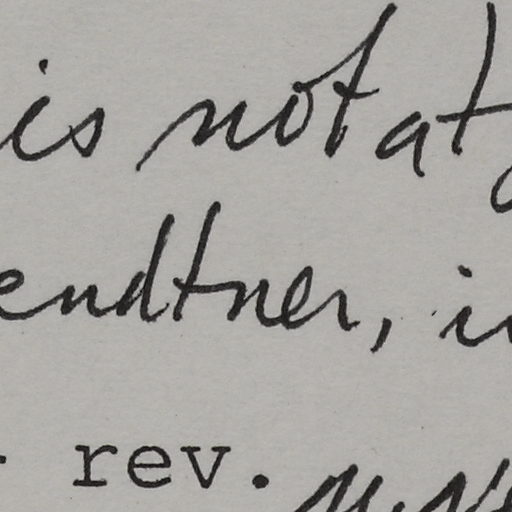 is not at
endtner, i
rev.